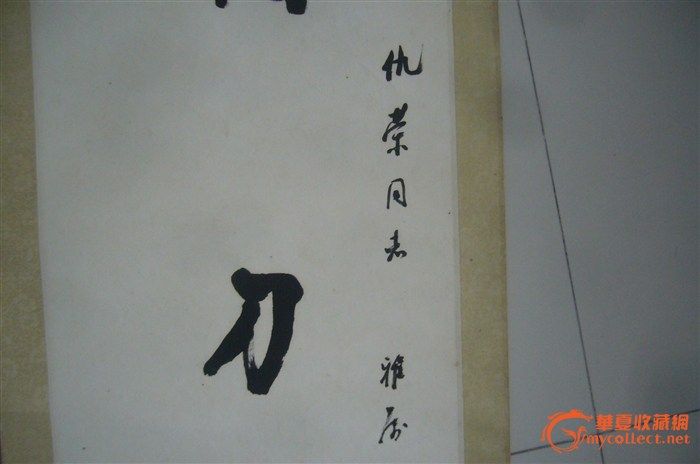 仇荣同志 雅属
刀
華夏收藏網
mycollect.net